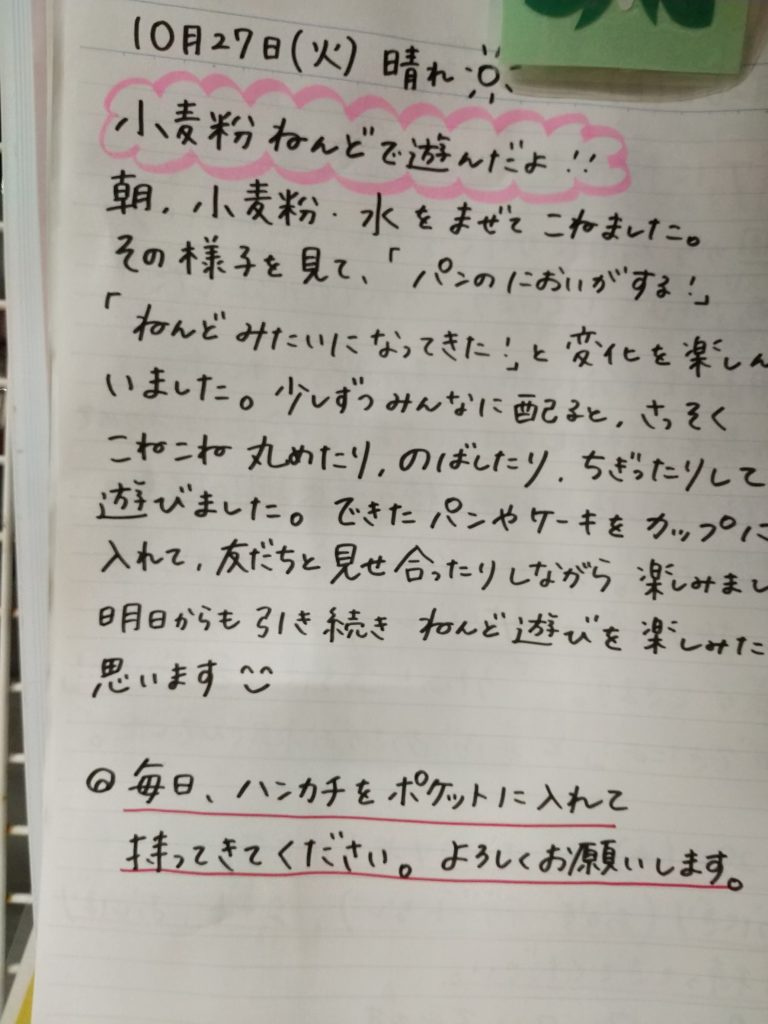 10月27日(火) 晴れ
小麦粉ねんどで遊んだよ!!
朝、小麦粉・水をまぜてこねました。
その様子を見て、「パンのにおいがする!」
「ねんどみたいになってきた!」と変化を楽しん
いました。少しずつみんなに配ると、さっそく
こねこね丸めたり、のばしたり、ちぎったりして
遊びました。できたパンやケーキをカップに
入れて、友だちと見せ合ったりしながら楽しみまし
明日からも引き続きねんど遊びを楽しみた
思います
◎毎日、ハンカチをポケットに入れて
持ってきてください。よろしくお願いします。